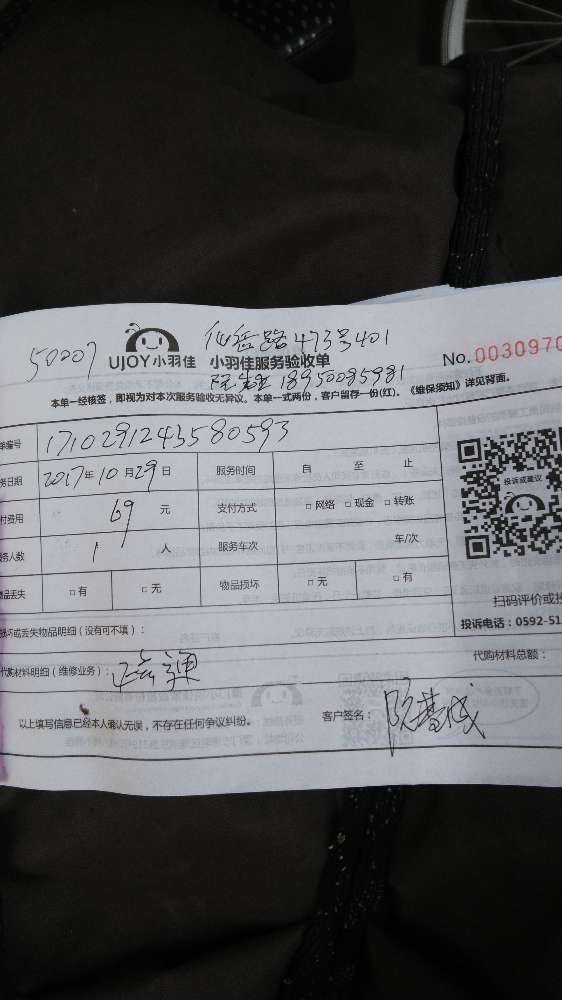 50207
仙岳路473号401
UJOY小羽佳 小羽佳服务验收单
No.0030970
18950085981
本单一经核签,即视为对本次服务验收无异议。本单一式两份,客户留存一份(红)。《维保须知》详见背面。
单编号 1710291243580593
务日期 2017年10月29日 服务时间 自 至 止
付费用 69 元 支付方式 □网络 □现金 □转账
务人数 1 人 服务车次 车/次
物品丢失 □有 □无 物品损坏 □无 □有
投诉或建议
扫码评价或投
投诉电话:0592-51
损坏或丢失物品明细(没有可不填):
代购材料明细(维修业务):
代购材料总额:
以上填写信息已经本人确认无误,不存在任何争议纠纷。
客户签名: